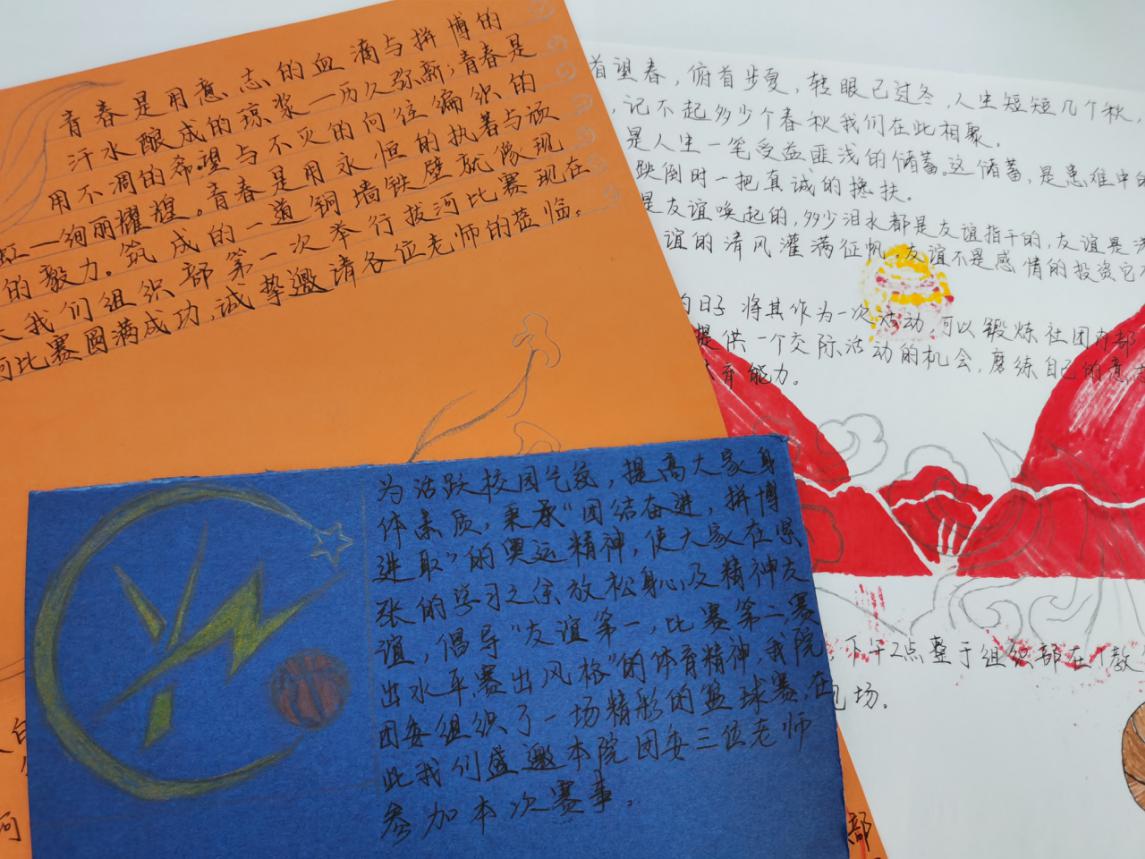 青春是用意志的血滴与拼博的
汗水酿成的琼浆—历久弥新;青春是
用不凋的希望与不灭的向往编织的
虹—绚丽耀煌。青春是用永恒的执着与顽
的毅力。筑成的一道铜墙铁壁就像现
我们组织部第一次举行拔河比赛现在
河比赛圆满成功,诚挚邀请各位老师的莅临。
首望春,俯首步夏,转眼已过冬,人生短短几个秋,
,记不起多少个春秋我们在此相聚。
是人生一笔受益匪浅的储蓄。这储蓄,是患难中的
跌倒时一把真诚的搀扶。
是友谊唤起的,多少泪水都是友谊指干的,友谊是
谊的清风灌满征帆。友谊不是感情的投资它
的日子 将其作为一次活动,可以锻炼社团内部
提供一个交际活动的机会,磨练自己的意志
能力。
下午2点整于组织部在1教
现场。
为活跃校园气氛,提高大家身
体素质,秉承“团结奋进,拼博
进取”的奥运精神,使大家在紧
张的学习之余放松身心,及精神友
谊,倡导“友谊第一,比赛第二,赛
出水平,赛出风格”的体育精神,我院
团委组织了一场精彤的篮球赛,在
此我们盛邀本院团委三位老师
参加本次赛事。
河
部